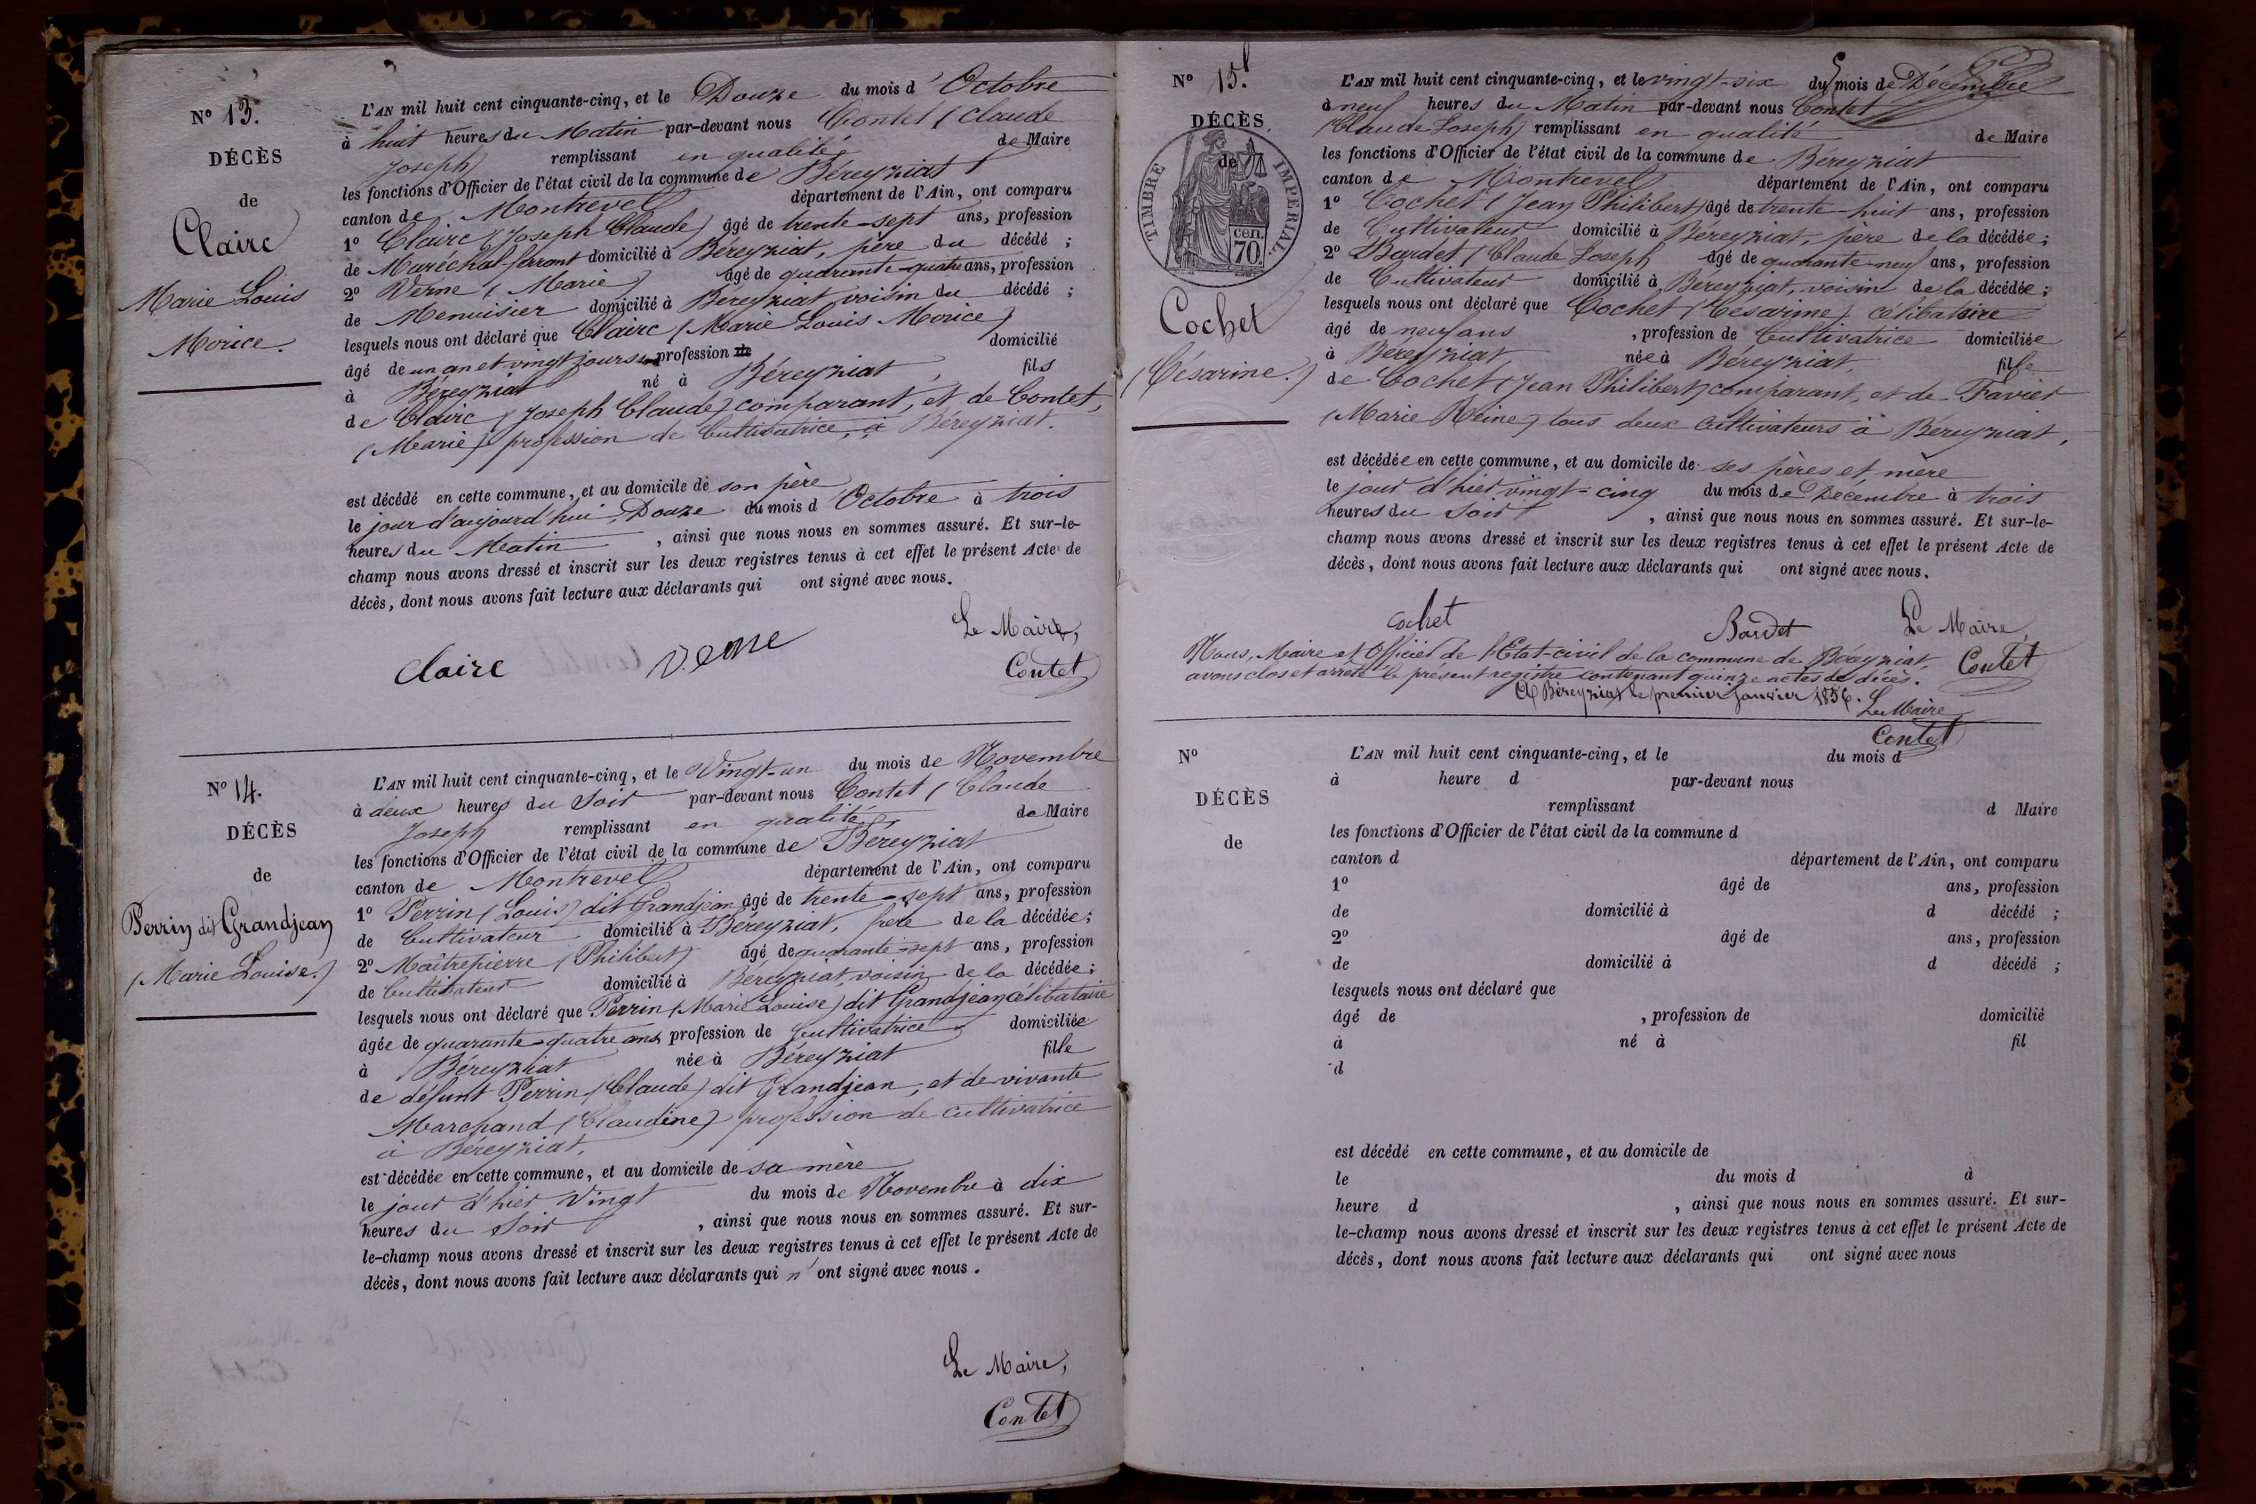 N° 13.
DÉCÈS
de
Claire
Marie Louis
Morice.
L'AN mil huit cent cinquante-cinq, et le Douze du mois d'Octobre
à huit heures du Matin par-devant nous Contet (Claude
Joseph) remplissant en qualité de Maire
les fonctions d'Officier de l'état civil de la commune de Béreyziat
canton de Montrevel département de l'Ain, ont comparu
1° Claire (Joseph Claude) âgé de trente-sept ans, profession
de Maréchal-ferrant domicilié à Béreyziat, père du décédé ;
2° Verne (Marie) âgé de quarante-quatre ans, profession
de Menuisier domicilié à Béreyziat voisin du décédé ;
lesquels nous ont déclaré que Claire (Marie Louis Morice)
âgé de un an et vingt jours profession de domicilié
à Béreyziat né à Béreyziat, fils
de Claire (Joseph Claude) comparant, et de Contet,
(Marie) profession de Cultivatrice, à Béreyziat.
est décédé en cette commune, et au domicile de son père
le jour d'aujourd'hui, Douze du mois d'Octobre à trois
heures du Matin, ainsi que nous nous en sommes assuré. Et sur-le-
champ nous avons dressé et inscrit sur les deux registres tenus à cet effet le présent Acte de
décès, dont nous avons fait lecture aux déclarants qui ont signé avec nous.
Le Maire,
Claire Verne Contet
N° 14.
DÉCÈS
de
Perrin dit Grandjean
(Marie Louise.)
L'AN mil huit cent cinquante-cinq, et le Vingt-un du mois de Novembre
à deux heures du Soir par-devant nous Contet (Claude
Joseph remplissant en qualité de Maire
les fonctions d'Officier de l'état civil de la commune de Béreyziat
canton de Montrevel département de l'Ain, ont comparu
1° Perrin (Louis) dit Grandjean âgé de trente-sept ans, profession
de Cultivateur domicilié à Béreyziat, frère de la décédée ;
2° Maîtrepierre (Philibert) âgé de quarante-sept ans, profession
de Cultivateur domicilié à Béreyziat, voisin de la décédée ;
lesquels nous ont déclaré que Perrin (Marie Louise) dit Grandjean célibataire
âgée de quarante-quatre ans profession de Cultivatrice domiciliée
à Béreyziat née à Béreyziat fille
de défunt Perrin (Claude) dit Grandjean, et de vivante
Marchand (Claudine) profession de cultivatrice
à Béreyziat.
est décédée en cette commune, et au domicile de sa mère
le jour d'hier Vingt du mois de Novembre à dix
heures du Soir, ainsi que nous nous en sommes assuré. Et sur-
le-champ nous avons dressé et inscrit sur les deux registres tenus à cet effet le présent Acte de
décès, dont nous avons fait lecture aux déclarants qui n'ont signé avec nous.
Le Maire,
Contet
N° 15.
DÉCÈS
de
TIMBRE IMPERIAL.
70 cen.
Cochet
(Césarine.)
L'AN mil huit cent cinquante-cinq, et le vingt-six du mois de Décembre
à neuf heures du Matin par-devant nous Contet
(Claude Joseph) remplissant en qualité de Maire
les fonctions d'Officier de l'état civil de la commune de Béreyziat
canton de Montrevel département de l'Ain, ont comparu
1° Cochet (Jean Philibert) âgé de trente-huit ans, profession
de Cultivateur domicilié à Béreyziat, père de la décédée ;
2° Bardet (Claude Joseph âgé de quarante-neuf ans, profession
de Cultivateur domicilié à Béreyziat, voisin de la décédée ;
lesquels nous ont déclaré que Cochet (Césarine) célibataire
âgé de neuf ans, profession de Cultivatrice domiciliée
à Béreyziat née à Béreyziat, fille
de Cochet (Jean Philibert) comparant, et de Favier
(Marie Reine) tous deux cultivateurs à Béreyziat,
est décédée en cette commune, et au domicile de ses pères et mère
le jour d'hier vingt-cinq du mois de Décembre à trois
heures du Soir, ainsi que nous nous en sommes assuré. Et sur-le-
champ nous avons dressé et inscrit sur les deux registres tenus à cet effet le présent Acte de
décès, dont nous avons fait lecture aux déclarants qui ont signé avec nous.
Cochet Bardet Le Maire,
Contet
Nous, Maire et Officier de l'Etat-civil de la commune de Béreyziat,
avons clos et arrêté le présent registre contenant quinze actes de décès.
A Béreyziat le premier Janvier 1856.
Le Maire
Contet
N°
DÉCÈS
de
L'AN mil huit cent cinquante-cinq, et le du mois d
à heure d par-devant nous
remplissant d Maire
les fonctions d'Officier de l'état civil de la commune d
canton d département de l'Ain, ont comparu
1° âgé de ans, profession
de domicilié à d décédé ;
2° âgé de ans, profession
de domicilié à d décédé ;
lesquels nous ont déclaré que
âgé de , profession de domicilié
à né à fil
d
est décédé en cette commune, et au domicile de
le du mois d à
heure d , ainsi que nous nous en sommes assuré. Et sur-
le-champ nous avons dressé et inscrit sur les deux registres tenus à cet effet le présent Acte de
décès, dont nous avons fait lecture aux déclarants qui ont signé avec nous